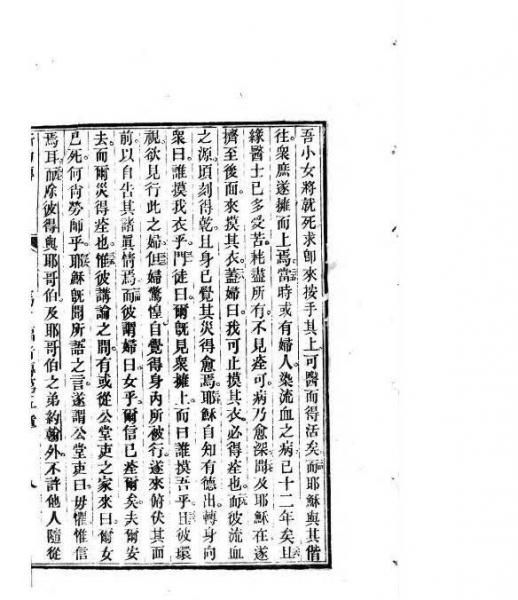 吾小女將就死求卽來按手其上可醫而得活矣而耶穌與其偕
往衆庶遂擁而上焉當時或有婦人染流血之病已十二年矣且
緣醫士已多受苦耗盡所有不見痊可病乃愈深聞及耶穌在遂
擠至後面來摸其衣蓋婦曰我可止摸其衣必得痊也而彼流血
之源頃刻得乾且身已覺其災得愈焉耶穌自知有德出轉身向
衆曰誰摸我衣乎門徒曰爾旣見衆擁上而曰誰摸吾乎且彼環
視欲見行此之婦但婦驚惶自覺得身內所被行遂來俯伏其面
前以自吿其諸眞情焉而彼謂婦曰女乎爾信已痊爾矣夫爾安
去而爾災得痊也惟彼講論之間有或從公堂吏之家來曰爾女
已死何尙勞師乎耶穌旣聞所語之言遂謂公堂吏曰毋懼惟信
焉耳而除彼得與耶哥伯及耶哥伯之弟約翰外不許他人隨從